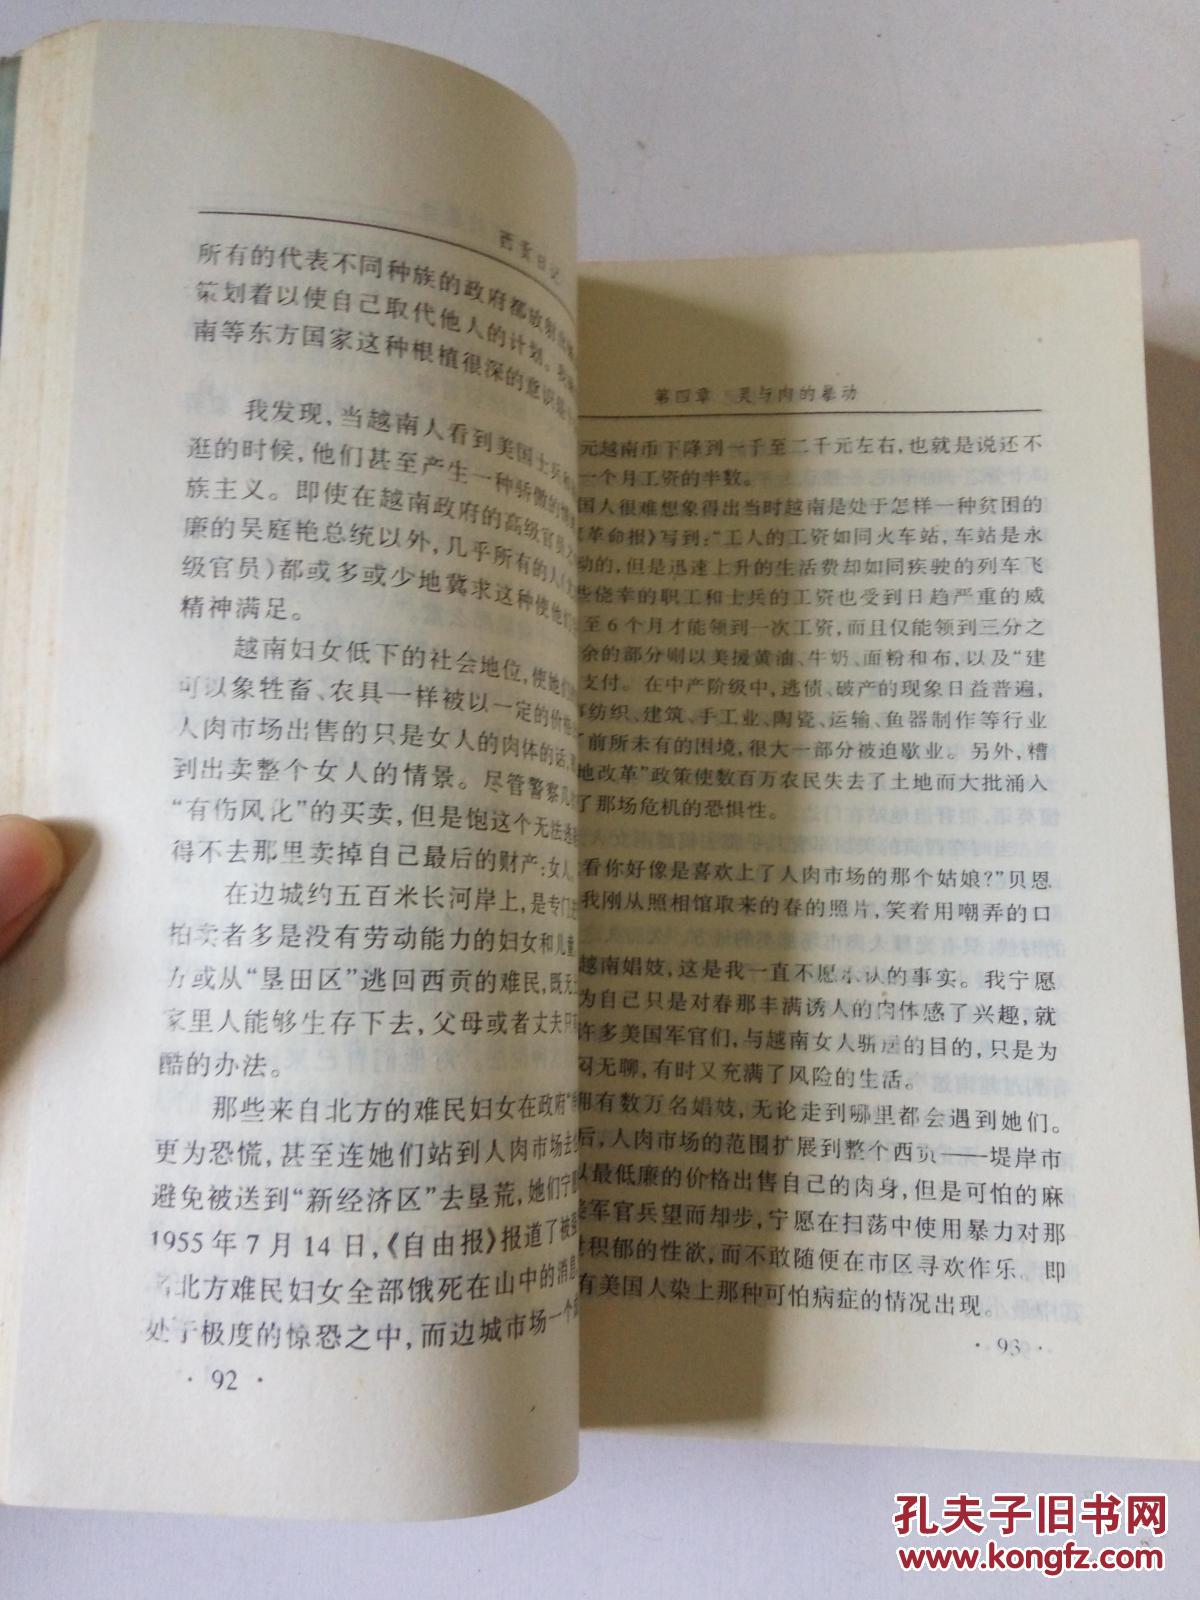 西贡日记
所有的代表不同种族的政府都放射
策划着以使自己取代他人的计划。
南等东方国家这种根植很深的意识是
我发现，当越南人看到美国士兵
逛的时候，他们甚至产生一种骄傲的
族主义。即使在越南政府的高级官员
廉的吴庭艳总统以外，几乎所有的人
级官员）都或多或少地冀求这种使他们
精神满足。
越南妇女低下的社会地位，使她们
可以象牲畜、农具一样被以一定的价格
人肉市场出售的只是女人的肉体的话，
到出卖整个女人的情景。尽管警察几
“有伤风化”的买卖，但是饱这个无法
得不去那里卖掉自己最后的财产：女人。
在边城约五百米长河岸上，是专门
拍卖者多是没有劳动能力的妇女和儿童
方或从“垦田区”逃回西贡的难民，既无
家里人能够生存下去，父母或者丈夫只
酷的办法。
那些来自北方的难民妇女在政府
更为恐慌，甚至连她们站到人肉市场去
避免被送到“新经济区”去垦荒，她们宁
1955年7月14日，《自由报》报道了被
北方难民妇女全部饿死在山中的消息
处于极度的惊恐之中，而边城市场一个
· 92 ·
第四章 灵与肉的暴动
元越南币下降到一千至二千元左右，也就是说还不
一个月工资的半数。
国人很难想象得出当时越南是处于怎样一种贫困的
革命报》写到：“工人的工资如同火车站，车站是永
动的，但是迅速上升的生活费却如同疾驶的列车飞
些侥幸的职工和士兵的工资也受到日趋严重的威
至6个月才能领到一次工资，而且仅能领到三分之
余的部分则以美援黄油、牛奶、面粉和布，以及“建
支付。在中产阶级中，逃债、破产的现象日益普遍，
纺织、建筑、手工业、陶瓷、运输、鱼器制作等行业
了前所未有的困境，很大一部分被迫歇业。另外，糟
地改革”政策使数百万农民失去了土地而大批涌入
了那场危机的恐惧性。
看你好像是喜欢上了人肉市场的那个姑娘？”贝恩
我刚从照相馆取来的春的照片，笑着用嘲弄的口
越南娼妓，这是我一直不愿承认的事实。我宁愿
为自己只是对春那丰满诱人的肉体感了兴趣，就
许多美国军官们，与越南女人骈居的目的，只是为
闷无聊，有时又充满了风险的生活。
拥有数万名娼妓，无论走到哪里都会遇到她们。
后，人肉市场的范围扩展到整个西贡——堤岸市
以最低廉的价格出售自己的肉身，但是可怕的麻
军官兵望而却步，宁愿在扫荡中使用暴力对那
积郁的性欲，而不敢随便在市区寻欢作乐。即
有美国人染上那种可怕病症的情况出现。
· 93 ·
孔夫子旧书网
www.kongfz.com